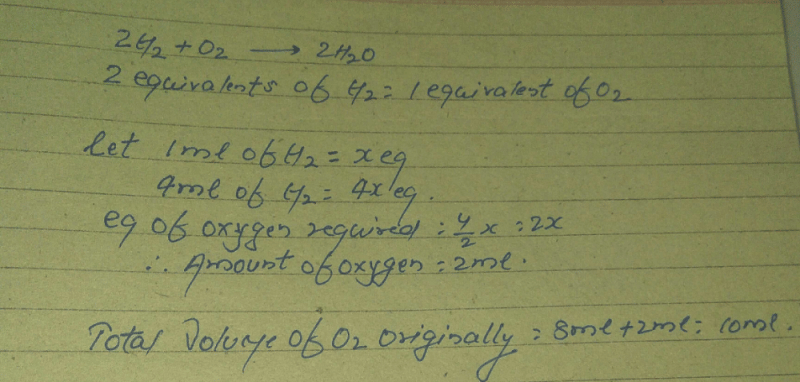 2H2 + O2 → 2H2O
2 equivalents of H2 = 1 equivalent of O2
let 1ml of H2 = x eq
4ml of H2 = 4x eq.
eq of oxygen required = 4/2 x = 2x
∴ Amount of oxygen = 2ml.
Total Volume of O2 originally = 8ml + 2ml = 10ml.